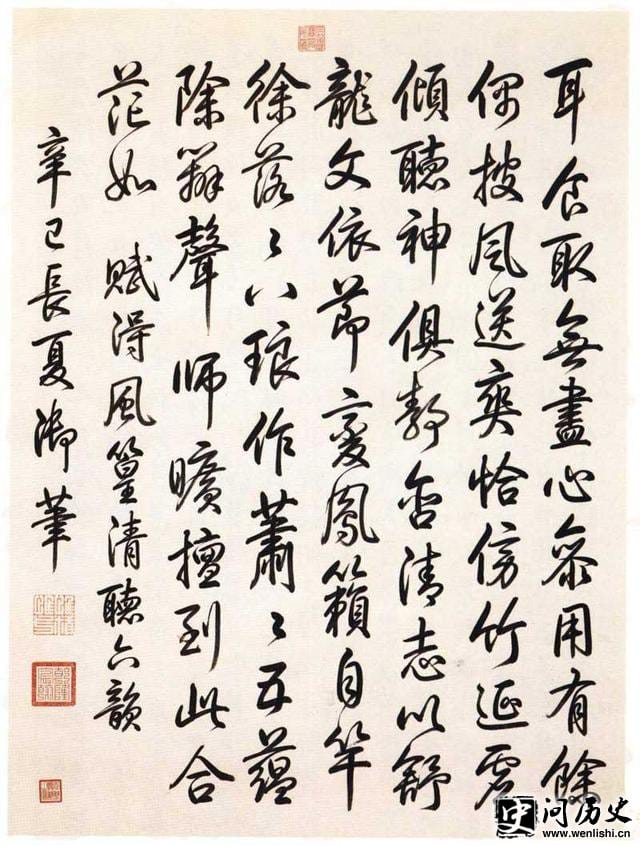 耳食取無盡心齋用有餘
偶披風送爽恰傍竹延虛
傾聽神俱靜含清志以舒
龍文依節變鳳籟自竿
徐落〻八琅作蕭〻五蘊
除辨聲師曠擅到此合
茫如 賦得風篁清聽六韻
辛巳長夏御筆
问历史
www.wenlishi.cn